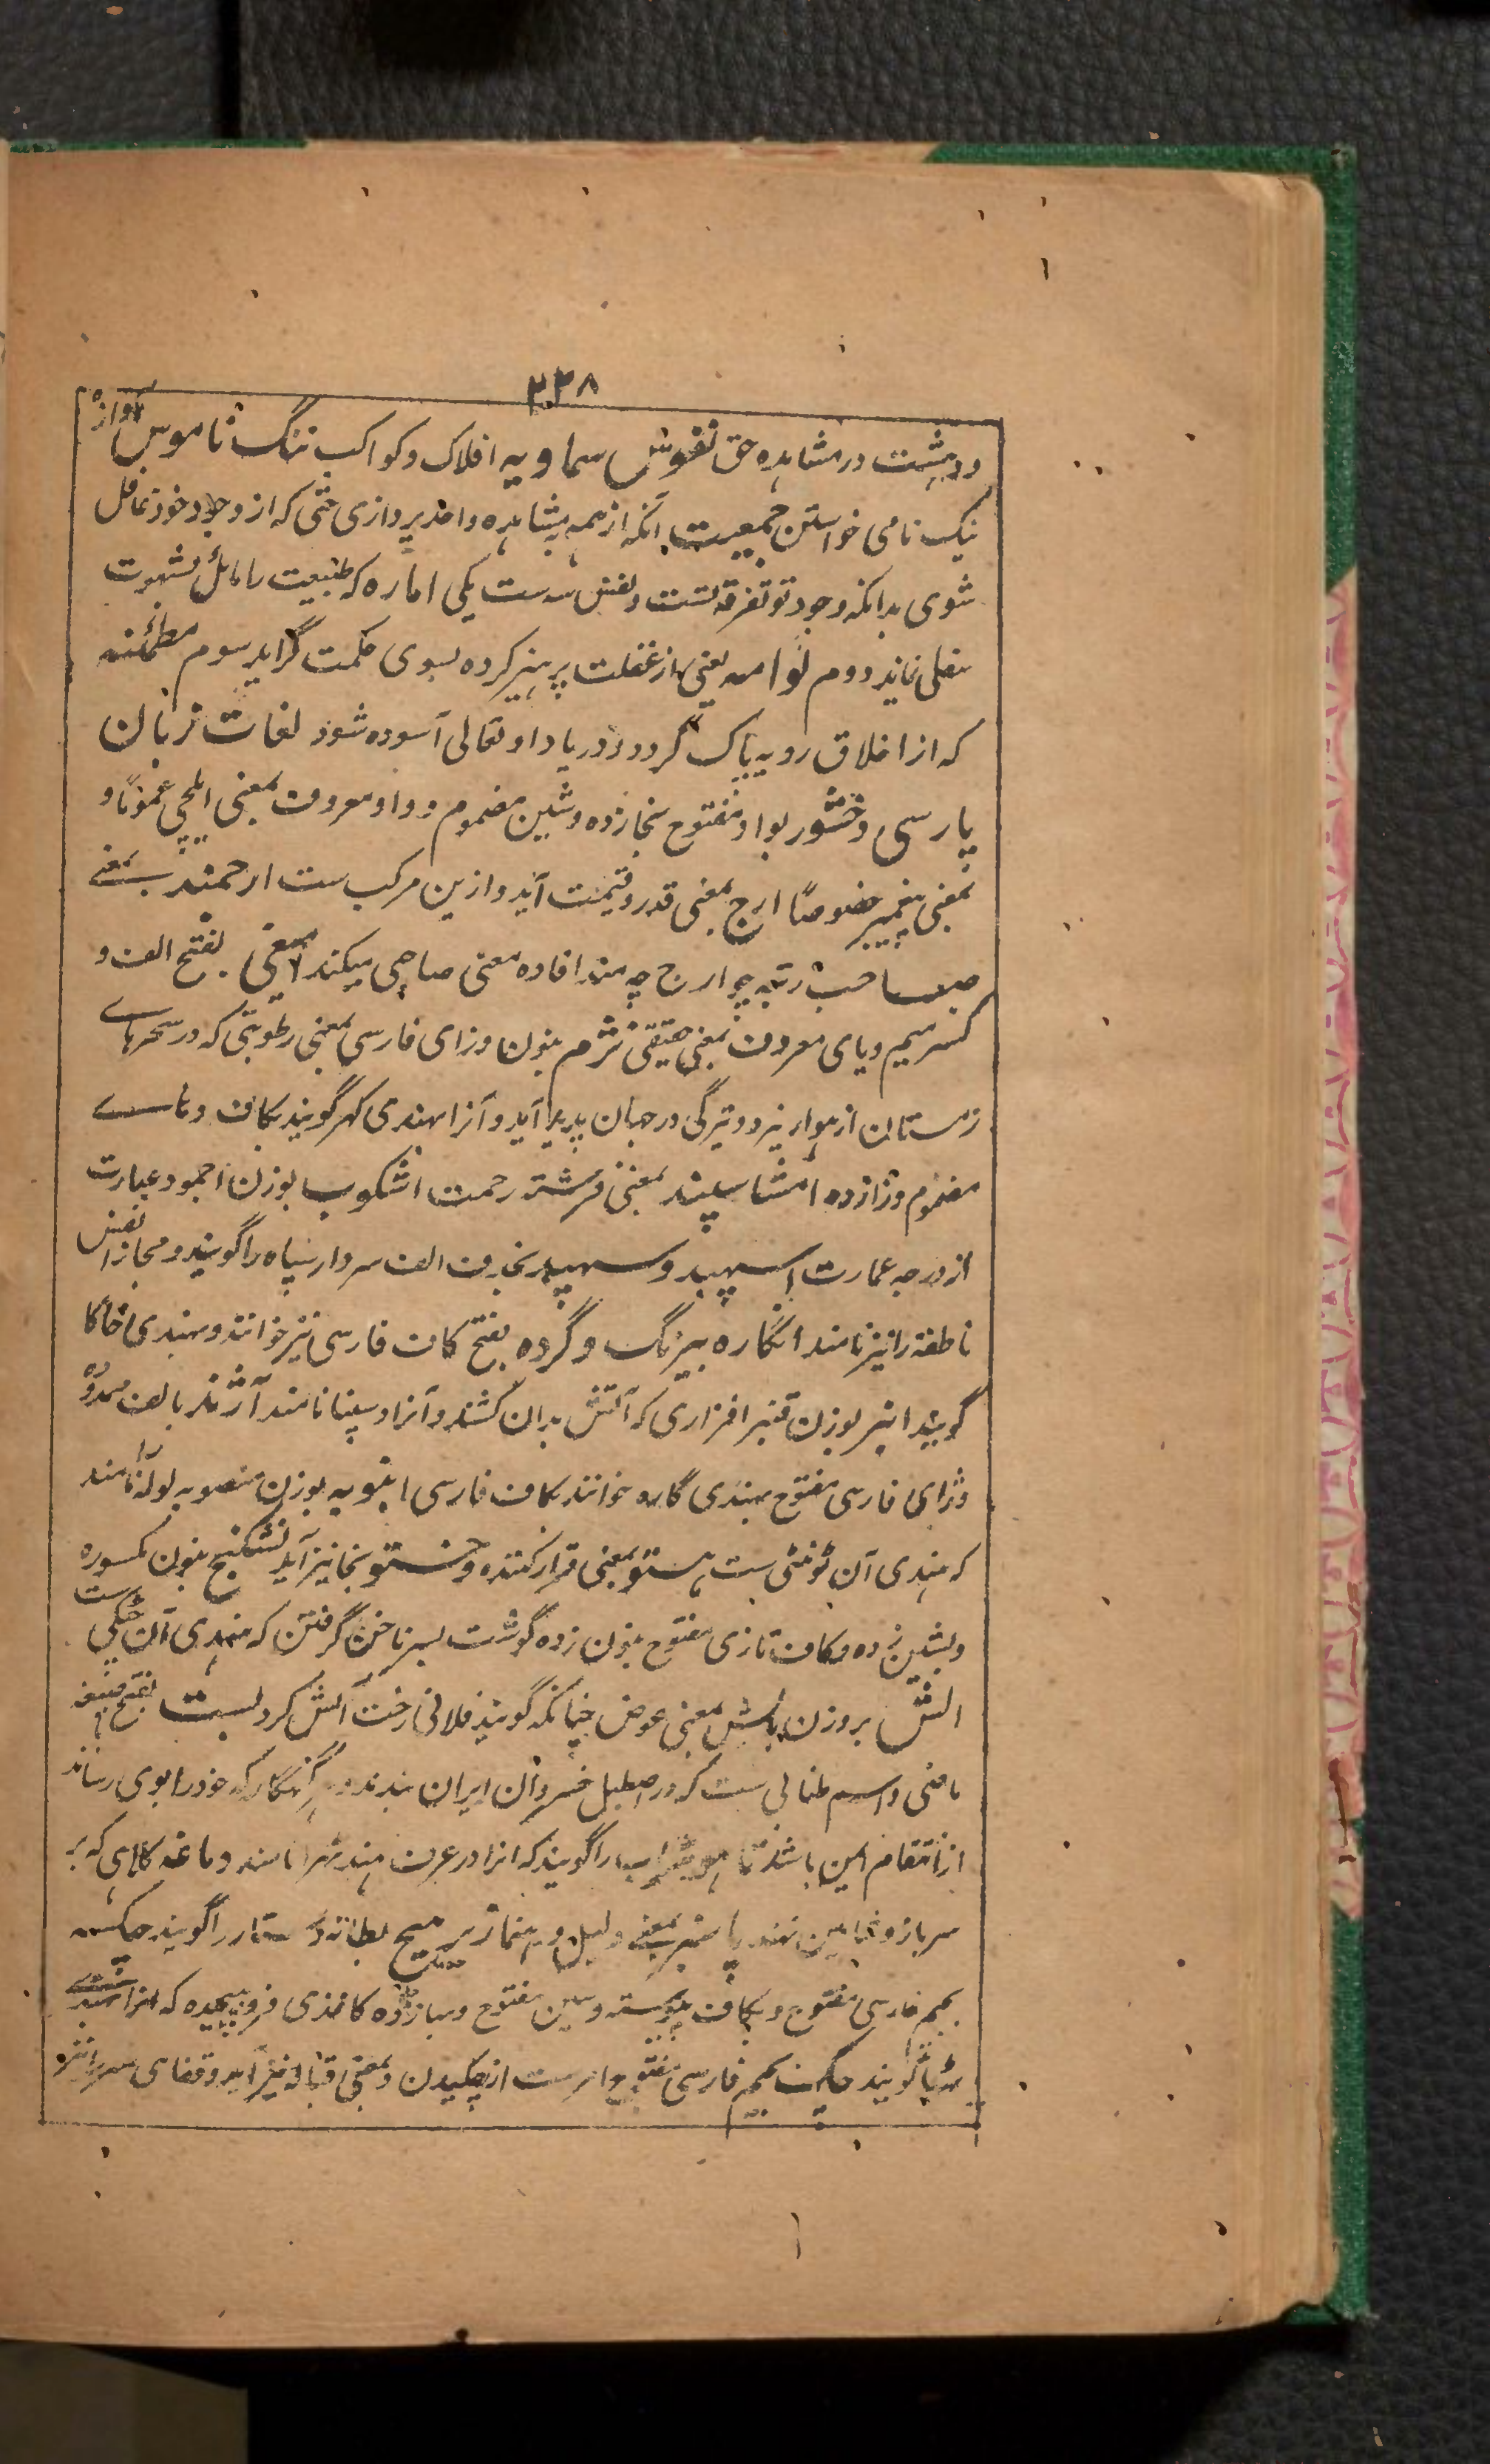 ۲۳۸
و دہشت در مشاہدہ حق نفوس سماویہ افلاک و کواکب ننگ ناموس آوازہ
نیک نامی خواستن جمعیت آنکہ از ہمہ بمشاہدہ واحد پردازی حتی کہ از وجود خود غافل
شوی بدانکہ وجود تو تفرقہ تست و نفس سہ ست یکی امارہ کہ طبیعت را مائل بشہوت
سفلی نماید دوم لوامہ یعنی از غفلت پرہیز کردہ بسوی حکمت گراید سوم مطمئنہ
کہ از اخلاق رویہ پاک گردد و در یاد او تعالی آسودہ شود لغات زبان
پارسی وخشور بواو مفتوح بخا زدہ و شین مضموم و واو معروف بمعنی ایلچی عموماً و
بمعنی پیغمبر خصوصاً ارج بمعنی قدر و قیمت آید و ازین مرکب ست ارجمند بمعنے
صاحب رتبہ چو ارج چہ مند افادہ معنی صاحبی میکند امیغی بفتح الف و
کسر میم و یای معروف بمعنی حقیقی نژم بنون و زای فارسی بمعنی رطوبتی کہ در سحرہاے
زمستان از ہوا ریزد و تیرگی در جہان پدید آید و آنرا بہندی کہر گویند بکاف و ہاے
مضموم و را زدہ امشاسپند بمعنی فرشتہ رحمت اشکوب بوزن اجمود عبارت
از درجہ عمارت اسپہبد و سپہبد بحذف الف سردار سپاہ را گویند و مجازاً نفس
ناطقہ را نیز نامند انگارہ بیرنگ و گردہ بفتح کاف فارسی نیز خوانند و بہندی خاکا
گویند انبر بوزن قنبر افزاری کہ آتش بدان کشند و آنرا دسپنا نامند آژند بالف ممدودہ
و ژای فارسی مفتوح بہندی گارہ خوانند بکاف فارسی انبوبہ بوزن منصوبہ لولہ را نامند
کہ ہندی آن ٹونٹی ست ہستو بمعنی قرار کنندہ و خستو بخا نیز آید نشکنج بنون مکسورہ
و بشین زدہ و کاف تازی مفتوح بنون زدہ گوشت بسر ناخن گرفتن کہ ہندی آن چٹکی ست
الش بروزن بالش بمعنی عوض چنانکہ گویند فلانی رخت الش کرد بست بفتح صیغہ
ماضی و اسم طنابی ست کہ در اصطبل خسروان ایران بندند و ہر گنہگار کہ خود را بوی رساند
از انتقام ایمن باشد را گویند کہ انرا در عرف ہند نامند و ماغہ کلاہی کہ بر
سر باز و شاہین نہند بمعنی دلیل و رہنما را گویند چکسہ
بجیم فارسی مفتوح و بکاف پیوستہ و سین مفتوح و بہا زدہ کاغذی فرو پیچیدہ کہ انرا بہندے
پڑیا گویند بجیم فارسی مفتوح امر ست از چکیدن و بمعنی قبالہ نیز آید و قفای سر را نیز